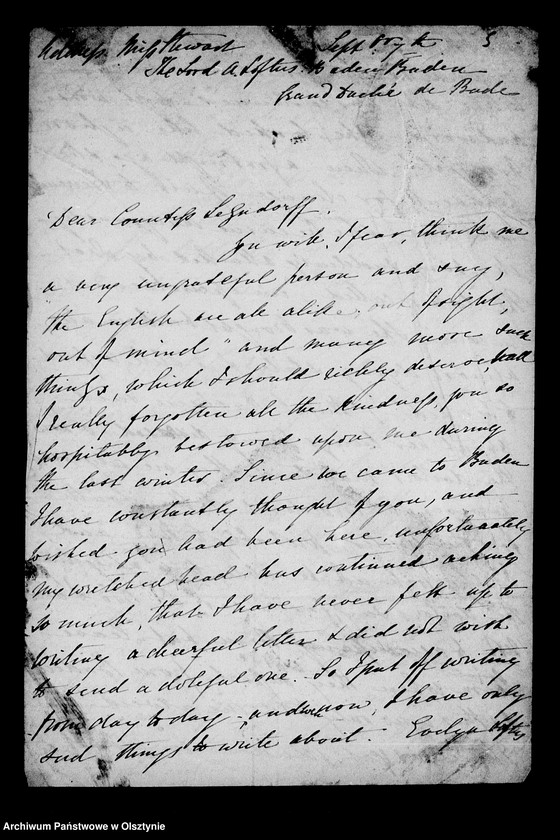 Address. Miss Stewart Sept 5
The Lord A. Loftus. Baden Baden
Grand Duché de Bade
Dear Countess Lehndorff.
You will, I fear, think me
a very ungrateful person and say,
"the English are all alike, out of sight,
out of mind" and many more such
things, which I should richly deserve, had
I really forgotten all the kindness you so
hospitably bestowed upon me during
the last winter. Since we came to Baden
I have constantly thought of you, and
wished you had been here, unfortunately
my wretched head has continued aching
so much, that I have never felt up to
writing a cheerful letter & did not wish
to send a doleful one. So I put off writing
from day to day, and now, I have only
sad things to write about. Evelyn Loftus
Archiwum Państwowe w Olsztynie